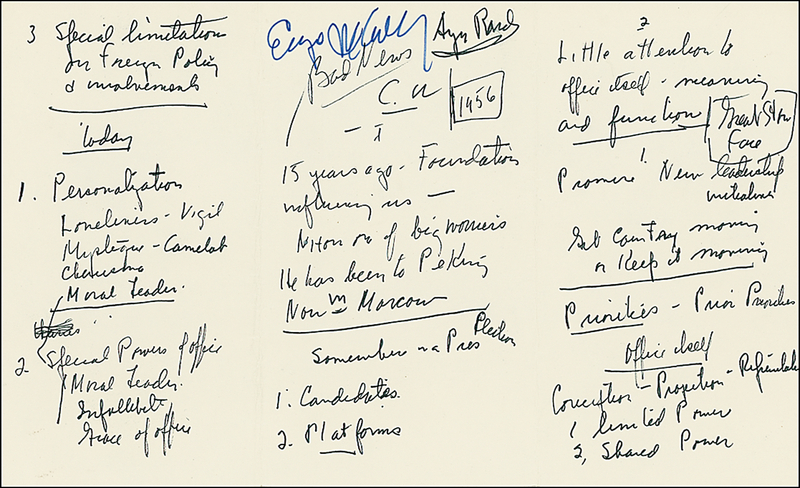 3 Special limitation
In Foreign Policy
& involvements
today
1. Personalization
Loneliness - Vigil
Mystique - Camelot
Charisma
Moral Leader.
2. Special Powers of office
Moral Leader.
Infallibil-
Grace of office
Bad News
C. U
1956
- I
15 years ago - Foundation
influencing us -
Nixon one of big worries
He has been to Peking
Now in Moscow
Somember - a Pres Election
1. Candidates.
2. Platforms
2
Little attention to
office itself - meaning
and function
Great Stone
Face
Promise! New leadership
Get Country moving
or Keep it moving
Priorities - Prior Priorities
Office itself
Conception - Projection -
1 limited Power
2, Shared Power